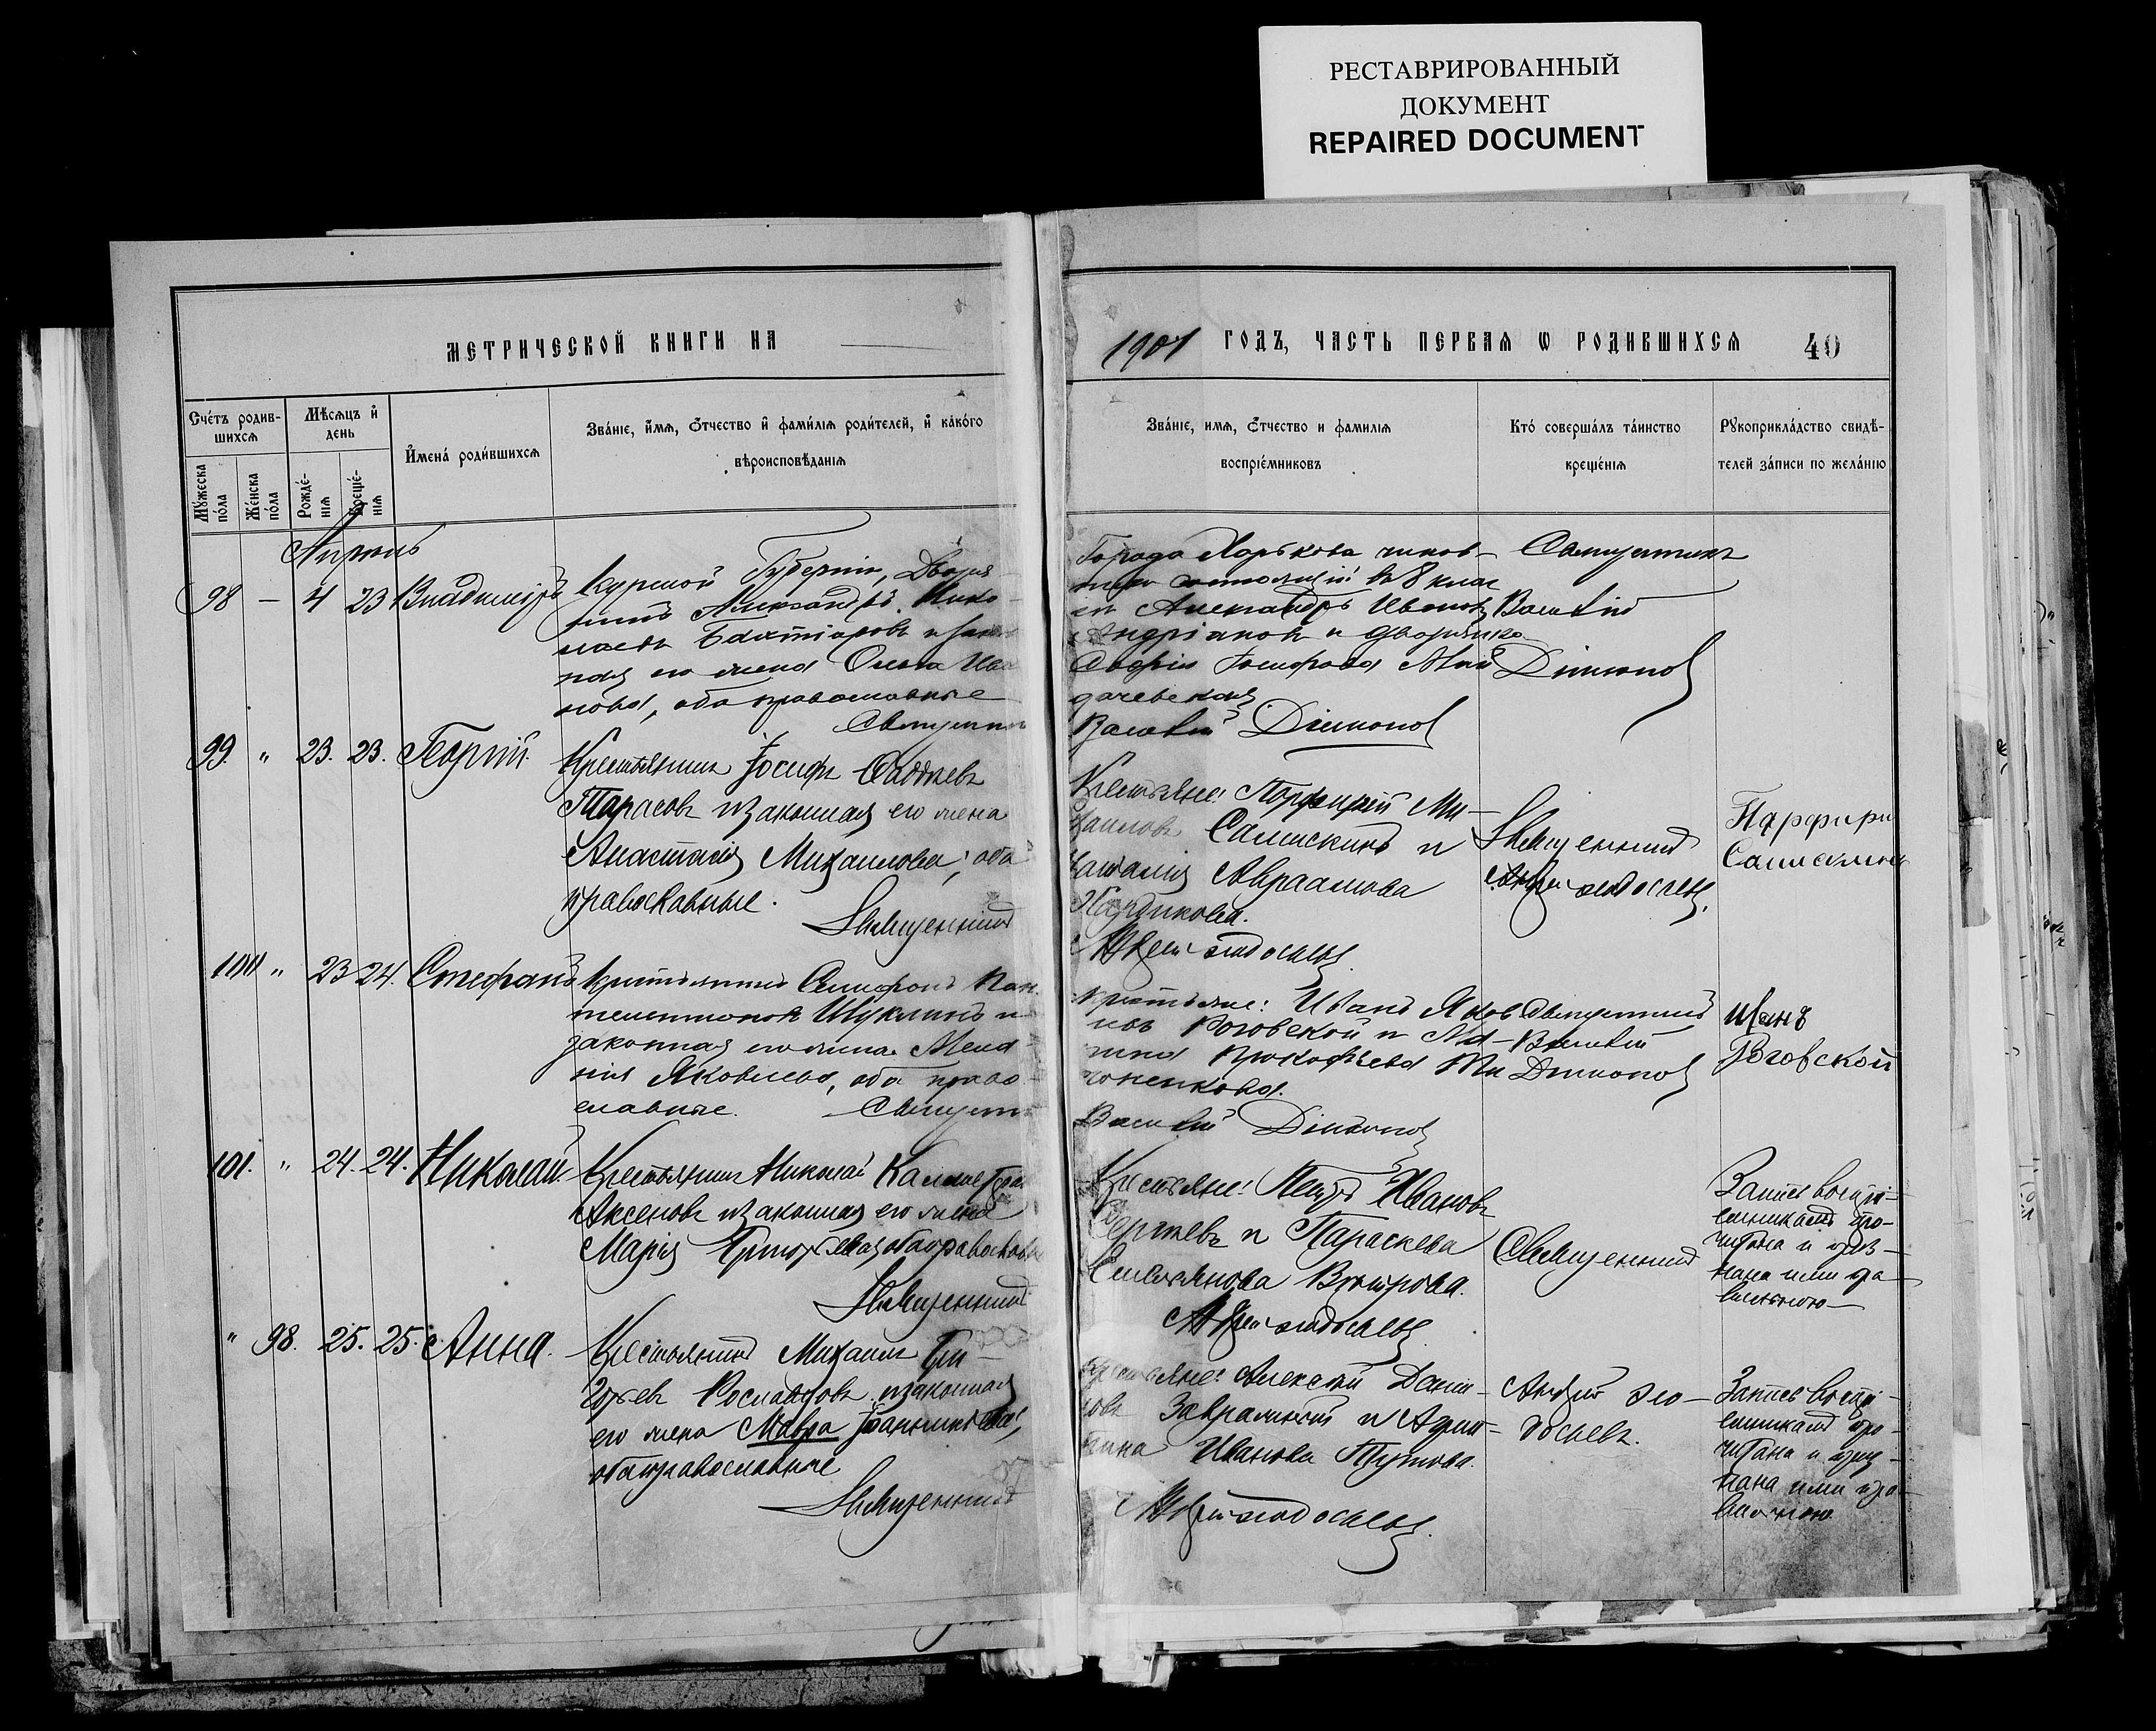 РЕСТАВРИРОВАННЫЙ
ДОКУМЕНТ
REPAIRED DOCUMENT
МЕТРИЧЕСКОЙ КНИГИ НА
1901 ГОДЪ, ЧАСТЬ ПЕРВАЯ Ѡ РОДИВШИХСЯ 40
Счéтъ родив-
шихсѧ
Мѣсѧцъ и҆
день
И҆мена́ роди́вшихсѧ
Зва́нїе, и҆́мѧ, Ѻ҆́тчество и҆ фами́лїѧ роди́телей, и҆ ка́кóго
вѣроисповѣ́данїѧ
Мꙋ́жеска
по́ла
Же́нска
по́ла
Рожде́-
нїѧ
Креще́-
нїѧ
Зва́нїе, имѧ, Ѻ҆тчество и фамилїѧ
воспрїе́мниковъ
Кто́ соверша́лъ та́инство
креще́нїѧ
Рꙋкоприкла́дство свидѣ́-
телей за́писи по жела́нїю
Апрель
98 — 4 23 Владиміръ
Курской Губерніи, Дворя-
нинъ Александръ Нико-
лаевъ Бахтіаровъ и закон
ная его жена Ольга Ива
нова, оба православные
Священник
Города Харькова чинов-
ник состоящій въ 8 клас
се Александръ Ивановъ
Андріановъ и дворянка
Софія Іосифова
Василій Дімоновъ
Священникъ
Василій
Дімоновъ
99. " 23. 23. Георгій.
Крестьянинъ Іосифъ Фаддеевъ
Тарасовъ и законная его жена
Анастасія Михаилова, оба
православные.
Священникъ
Крестьяне: Порфирій Ми-
хаиловъ Самискинъ и
Наталія Авраамова
Андрей Ѳедосѣевъ
Священникъ
Андрей Ѳедосѣевъ.
Парфири
100 " 23 24. Стефанъ
Крестьянинъ Симфонъ Пан
телеимоновъ Шуклинъ и
законная его жена Мела
нія Яковлева, оба право-
славные. Священ
Крестьяне: Иванъ Яков
левъ Роговской и Ма-
рина Прокофьева Ти
хоненкова.
Василій Дімоновъ
Священникъ
Василій
Дімоновъ
Иванъ
Роговской
101. " 24. 24. Николай.
Крестьянинъ Николай Каллистра
Аксеновъ и законная его жена
Марія Григорьева, оба православн
Священникъ
Крестьяне: Петръ Ивановъ
Сергеевъ и Параскева
Емельянова Вытрова.
Андрей Ѳедосѣевъ
Священникъ
Запись воспрі-
емникамъ про-
читана и приз-
нана ими пра
вильною
" 98. 25. 25. Анна.
Крестьянинъ Михаилъ Гри-
горьев Рославцовъ и законная
его жена Мавра Іоанникіева,
оба православные
Священникъ
Крестьяне: Алексѣй Дани-
ловъ и Агрип-
пина Иванова Тутова.
Андрей Ѳедосѣевъ.
Андрей Ѳео-
досѣевъ.
Запись воспрі-
емникамъ про-
читана и приз-
нана ими пра-
вильною.